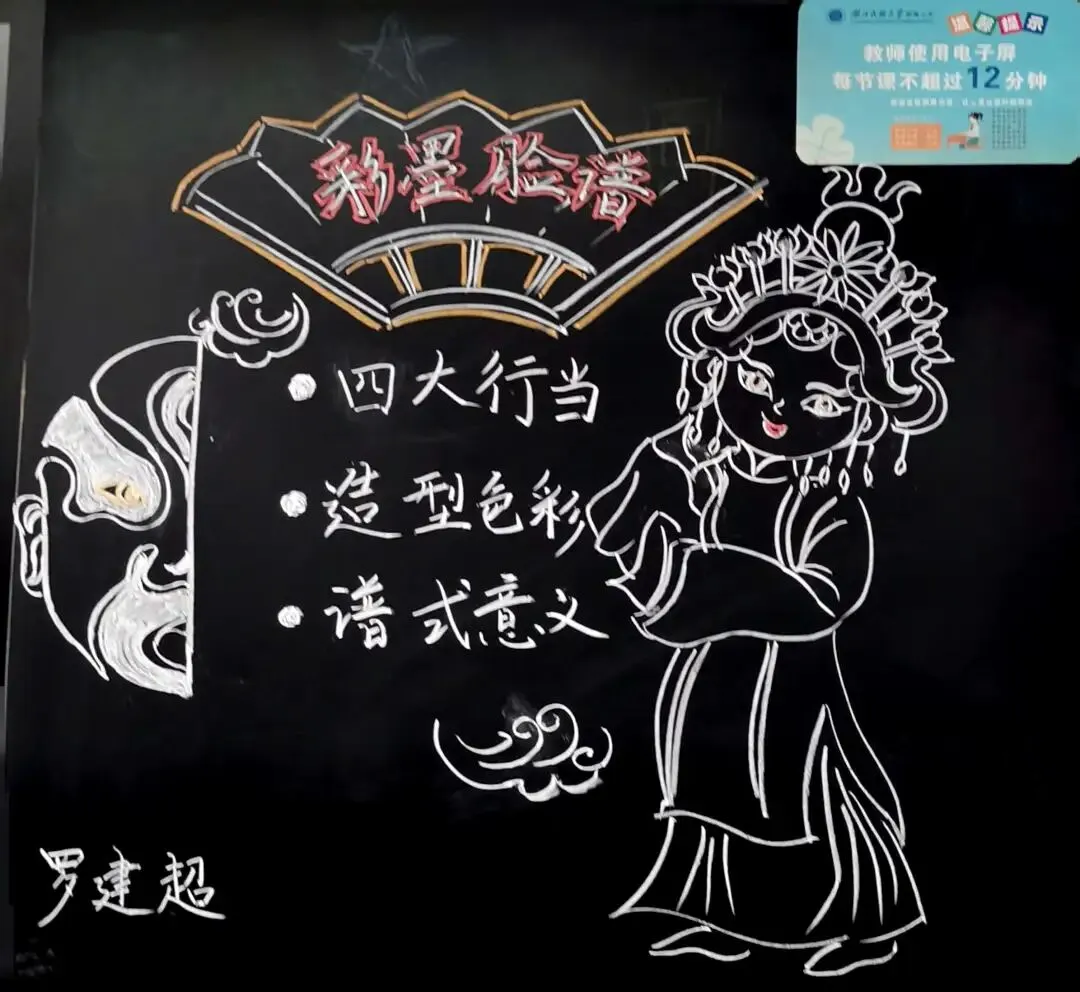 温馨提示
教师使用电子屏
每节课不超过12分钟
彩墨脸谱
四大行当
造型色彩
谱式意义
罗建超